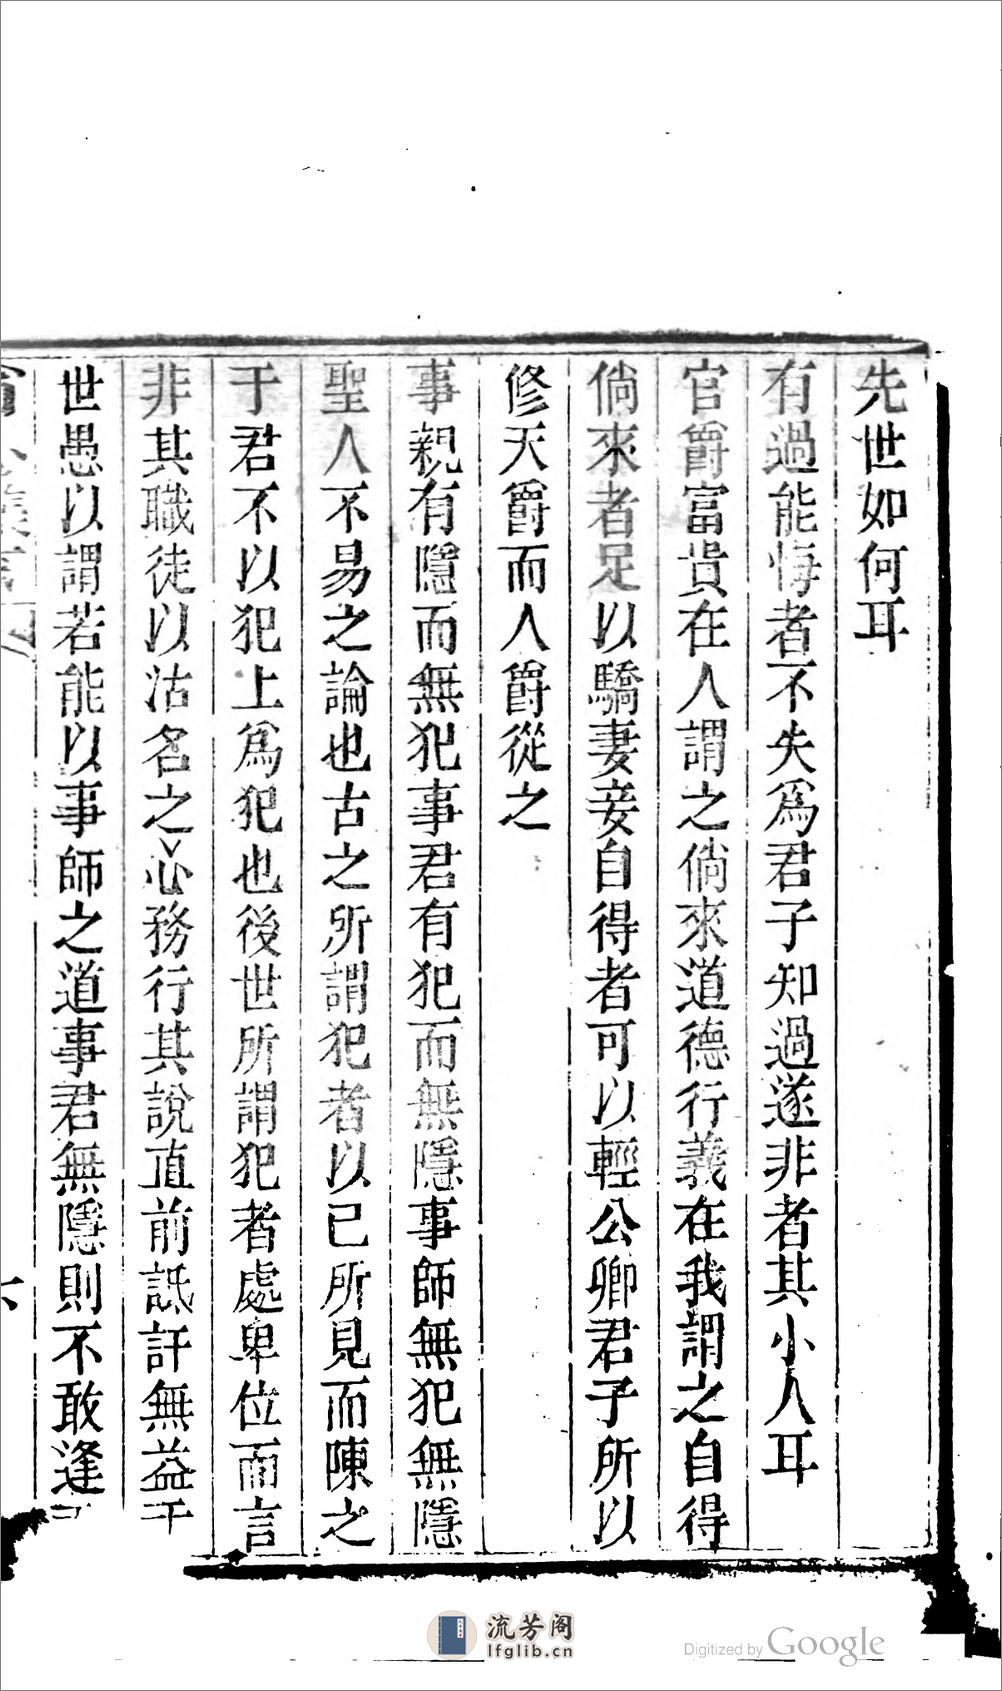 先世如何耳
有過能悔者不失為君子知過遂非者其小人耳
官爵富貴在人謂之倘來道德行義在我謂之自得
倘來者足以驕妻妾自得者可以輕公卿君子所以
修天爵而人爵從之
事親有隱而無犯事君有犯而無隱事師無犯無隱
聖人不易之論也古之所謂犯者以已所見而陳之
于君不以犯上為犯也後世所謂犯者處卑位而言
非其職徒以沽名之心務行其說直前詆訐無益于
世愚以謂若能以事師之道事君無隱則不敢逢
流芳阁
lfglib.cn
Digitized by Google